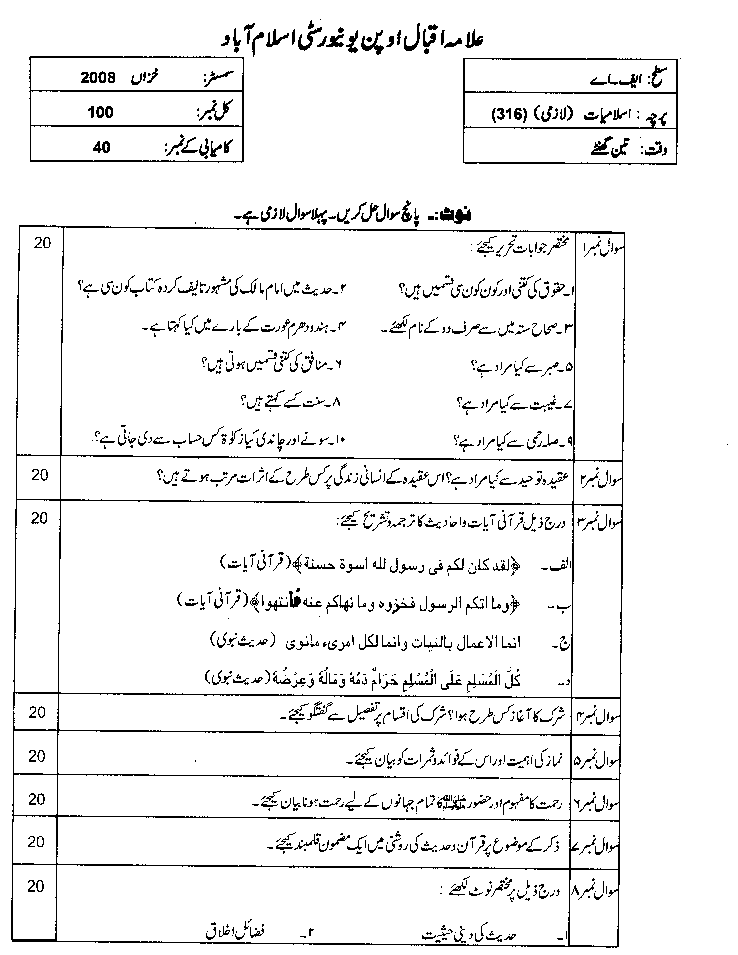 علامہ اقبال اوپن یونیورسٹی اسلام آباد
سطح: ایف اے
پرچہ: اسلامیات (لازمی) (316)
وقت: تین گھنٹے
سمسٹر: خزاں 2008
کل نمبر: 100
کامیابی کے نمبر: 40
نوٹ:۔ پانچ سوال حل کریں۔ پہلا سوال لازمی ہے۔
سوال نمبر ۱ مختصر جوابات تحریر کیجئے: 20
۱۔ حقوق کی کتنی اور کون کون سی قسمیں ہیں؟ ۲۔ حدیث میں امام مالک کی مشہور تالیف کردہ کتاب کون سی ہے؟
۳۔ صحاح ستہ میں سے صرف دو کے نام لکھئے۔ ۴۔ ہندو دھرم عورت کے بارے میں کیا کہتا ہے۔
۵۔ صبر سے کیا مراد ہے؟ ۶۔ منافق کی کتنی قسمیں ہوتی ہیں؟
۷۔ غیبت سے کیا مراد ہے؟ ۸۔ سنت کسے کہتے ہیں؟
۹۔ صلہ رحمی سے کیا مراد ہے؟ ۱۰۔ سونے اور چاندی کی زکوٰۃ کس حساب سے دی جاتی ہے؟
سوال نمبر ۲ عقیدہ توحید سے کیا مراد ہے؟ اس عقیدہ کے انسانی زندگی پر کس طرح کے اثرات مرتب ہوتے ہیں؟ 20
سوال نمبر ۳ درج ذیل قرآنی آیات واحادیث کا ترجمہ وتشریح کیجئے: 20
الف۔ ﴿لقد کان لکم فی رسول للہ اسوة حسنة﴾ (قرآنی آیات)
ب۔ ﴿وما اتکم الرسول فخزوہ وما نهاکم عنه فأنتهوا﴾ (قرآنی آیات)
ج۔ انما الاعمال بالنیات وانما لکل امریء مانوی (حدیث نبوی)
د۔ كُلُّ الْمُسْلِمِ عَلَى الْمُسْلِمِ حَرَامٌ دَمُهُ وَمَالُهُ وَعِرْضُهُ (حدیث نبوی)
سوال نمبر ۴ شرک کا آغاز کس طرح ہوا؟ شرک کی اقسام پر تفصیل سے گفتگو کیجئے۔ 20
سوال نمبر ۵ نماز کی اہمیت اور اس کے فوائد و ثمرات کو بیان کیجئے۔ 20
سوال نمبر ۶ رحمت کا مفہوم اور حضور ﷺ کا تمام جہانوں کے لیے رحمت ہونا بیان کیجئے۔ 20
سوال نمبر ۷ ذکر کے موضوع پر قرآن وحدیث کی روشنی میں ایک مضمون قلمبند کیجئے۔ 20
سوال نمبر ۸ درج ذیل پر مختصر نوٹ لکھئے: 20
۱۔ حدیث کی دینی حیثیت ۲۔ فضائل اخلاق